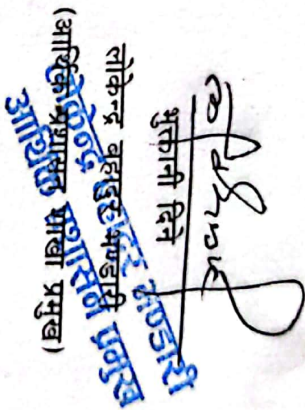 भुक्तानी दिने
लोकेन्द्र बहादुर भण्डारी
(आर्थिक प्रशासन शाखा प्रमुख)
लोकेन्द्र बहादुर भण्डारी
आर्थिक प्रशासन प्रमुख